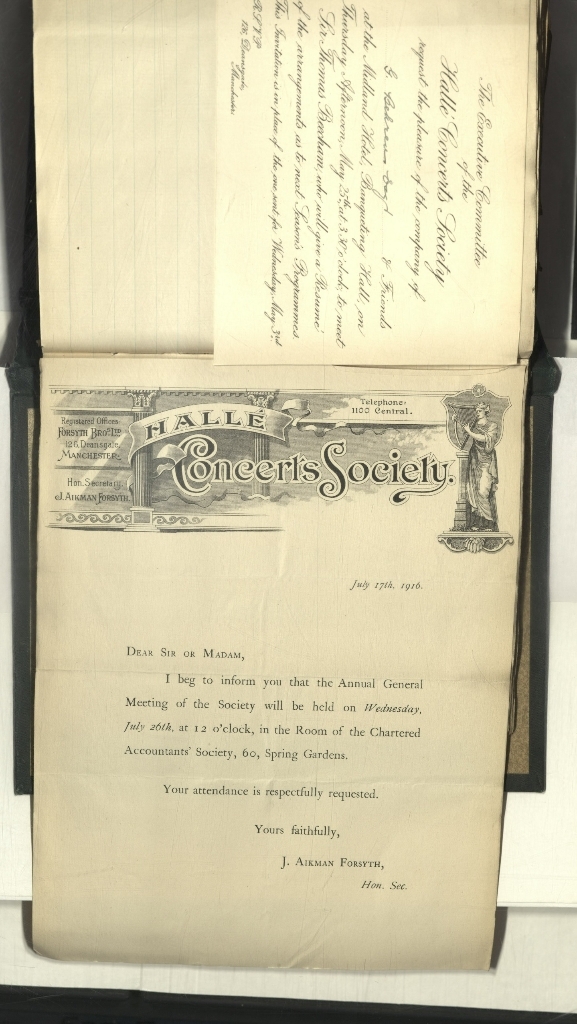 The Executive Committee
of the
Hallé Concerts Society
request the pleasure of the company of
G. Behrens Esq & Friends
at the Midland Hotel, Banqueting Hall, on
Thursday Afternoon, May 25th, at 3.30 o'clock, to meet
Sir Thomas Beecham, who will give a Résumé
of the arrangements as to next Season's Programmes
This Invitation is in place of the one sent for Wednesday, May 3rd
R.S.V.P.
126, Deansgate,
Manchester.
Registered Offices
FORSYTH BROS. LTD
126, Deansgate,
MANCHESTER.
Hon. Secretary.
J. AIKMAN FORSYTH.
HALLÉ
Concerts Society.
Telephone:
1100 Central.
July 17th, 1916.
DEAR SIR OR MADAM,
I beg to inform you that the Annual General
Meeting of the Society will be held on Wednesday,
July 26th, at 12 o'clock, in the Room of the Chartered
Accountants' Society, 60, Spring Gardens.
Your attendance is respectfully requested.
Yours faithfully,
J. AIKMAN FORSYTH,
Hon. Sec.